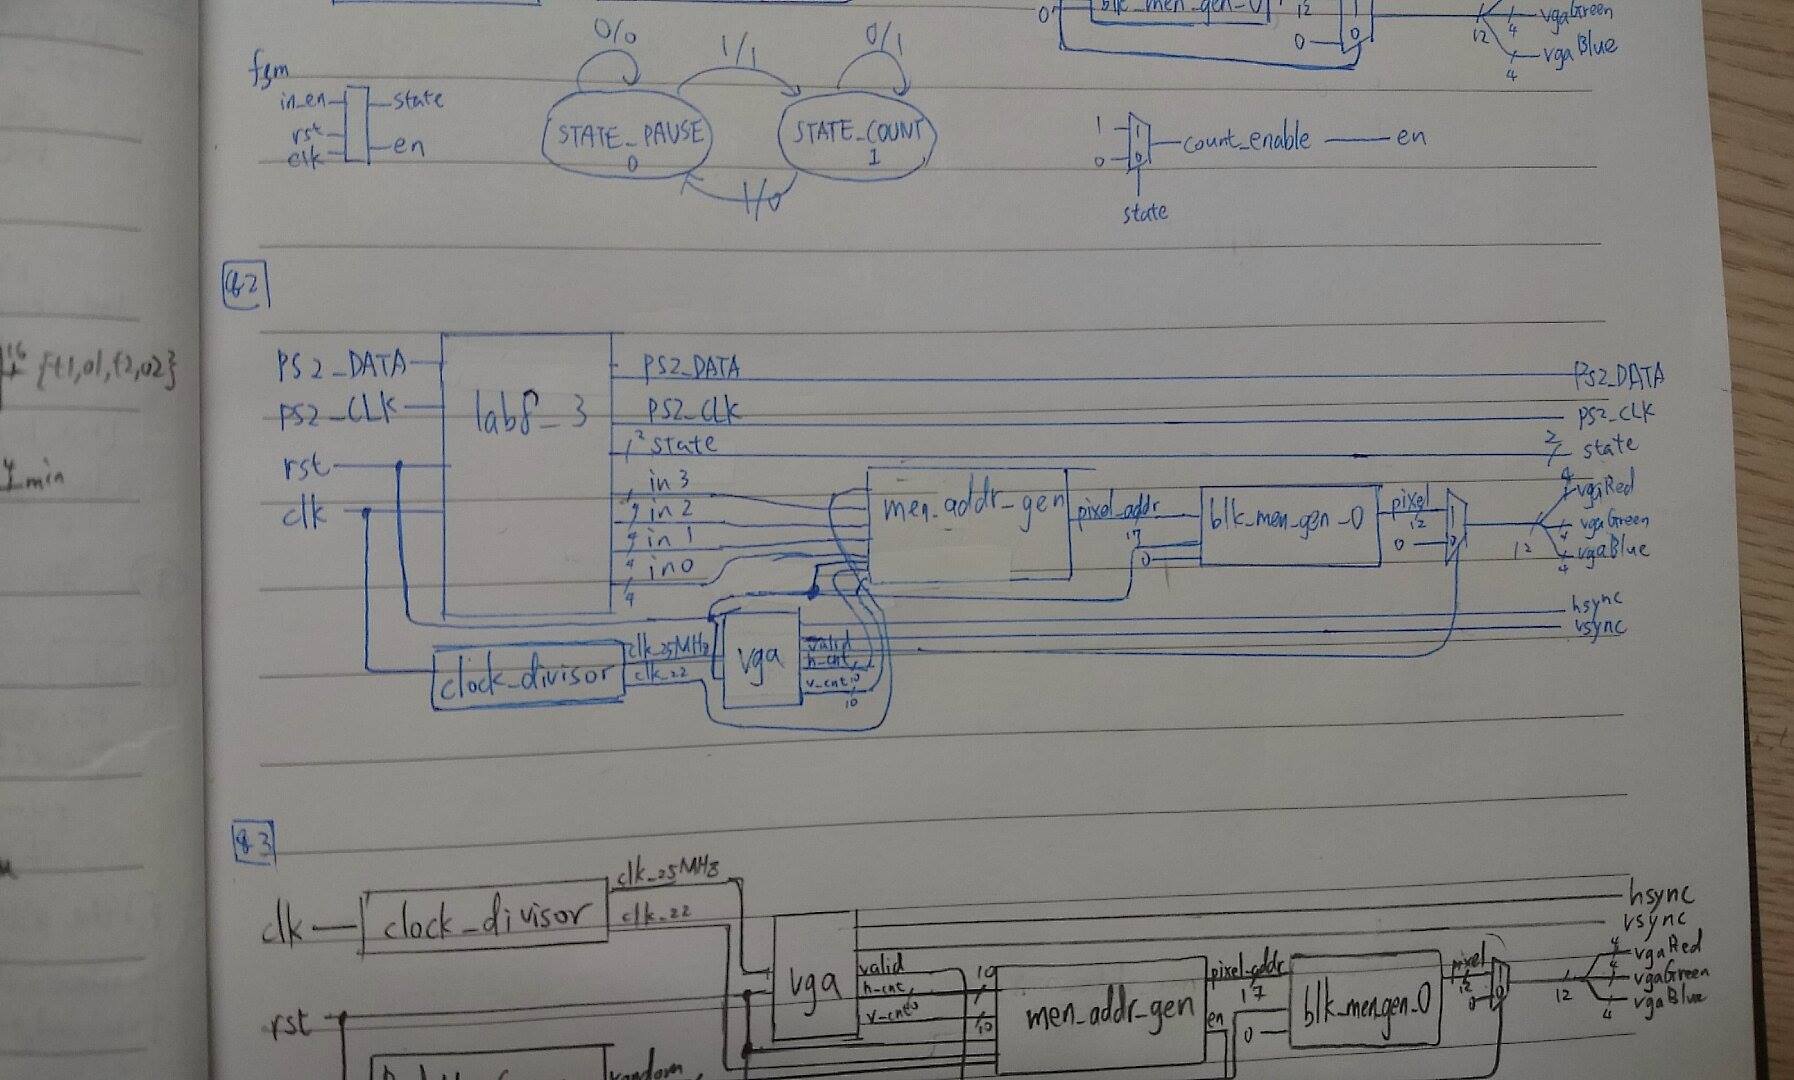 0 blk_men_gen_0 12 1 0 0 12 4 vgaGreen
4 vgaBlue
fsm 0/0 1/1 0/1
in_en state
rst
clk en
STATE_PAUSE 0
STATE_COUNT 1
1/0
1 1 count_enable en
0 0
state
82
16 {t1,01,t2,02}
min
PS2_DATA PS2_DATA PS2_DATA
PS2_CLK lab8_3 PS2_CLK PS2_CLK
2 state 2 state
rst in3
clk in2
in1
in0
4
men_addr_gen pixel_addr 17 0 blk_men_gen_0 pixel 12 0 1 0 12
4 vgaRed
4 vgaGreen
4 vgaBlue
hsync
vsync
clock_divisor clk_25MHz clk_22 vga valid h_cnt v_cnt 10 10
83
clk clock_divisor clk_25MHz clk_22
hsync
vsync
rst vga valid h_cnt v_cnt 10 10 10 men_addr_gen pixel_addr 17 en 0 blk_men_gen_0 pixel 12 0 0 12
4 vgaRed
4 vgaGreen
4 vgaBlue
random